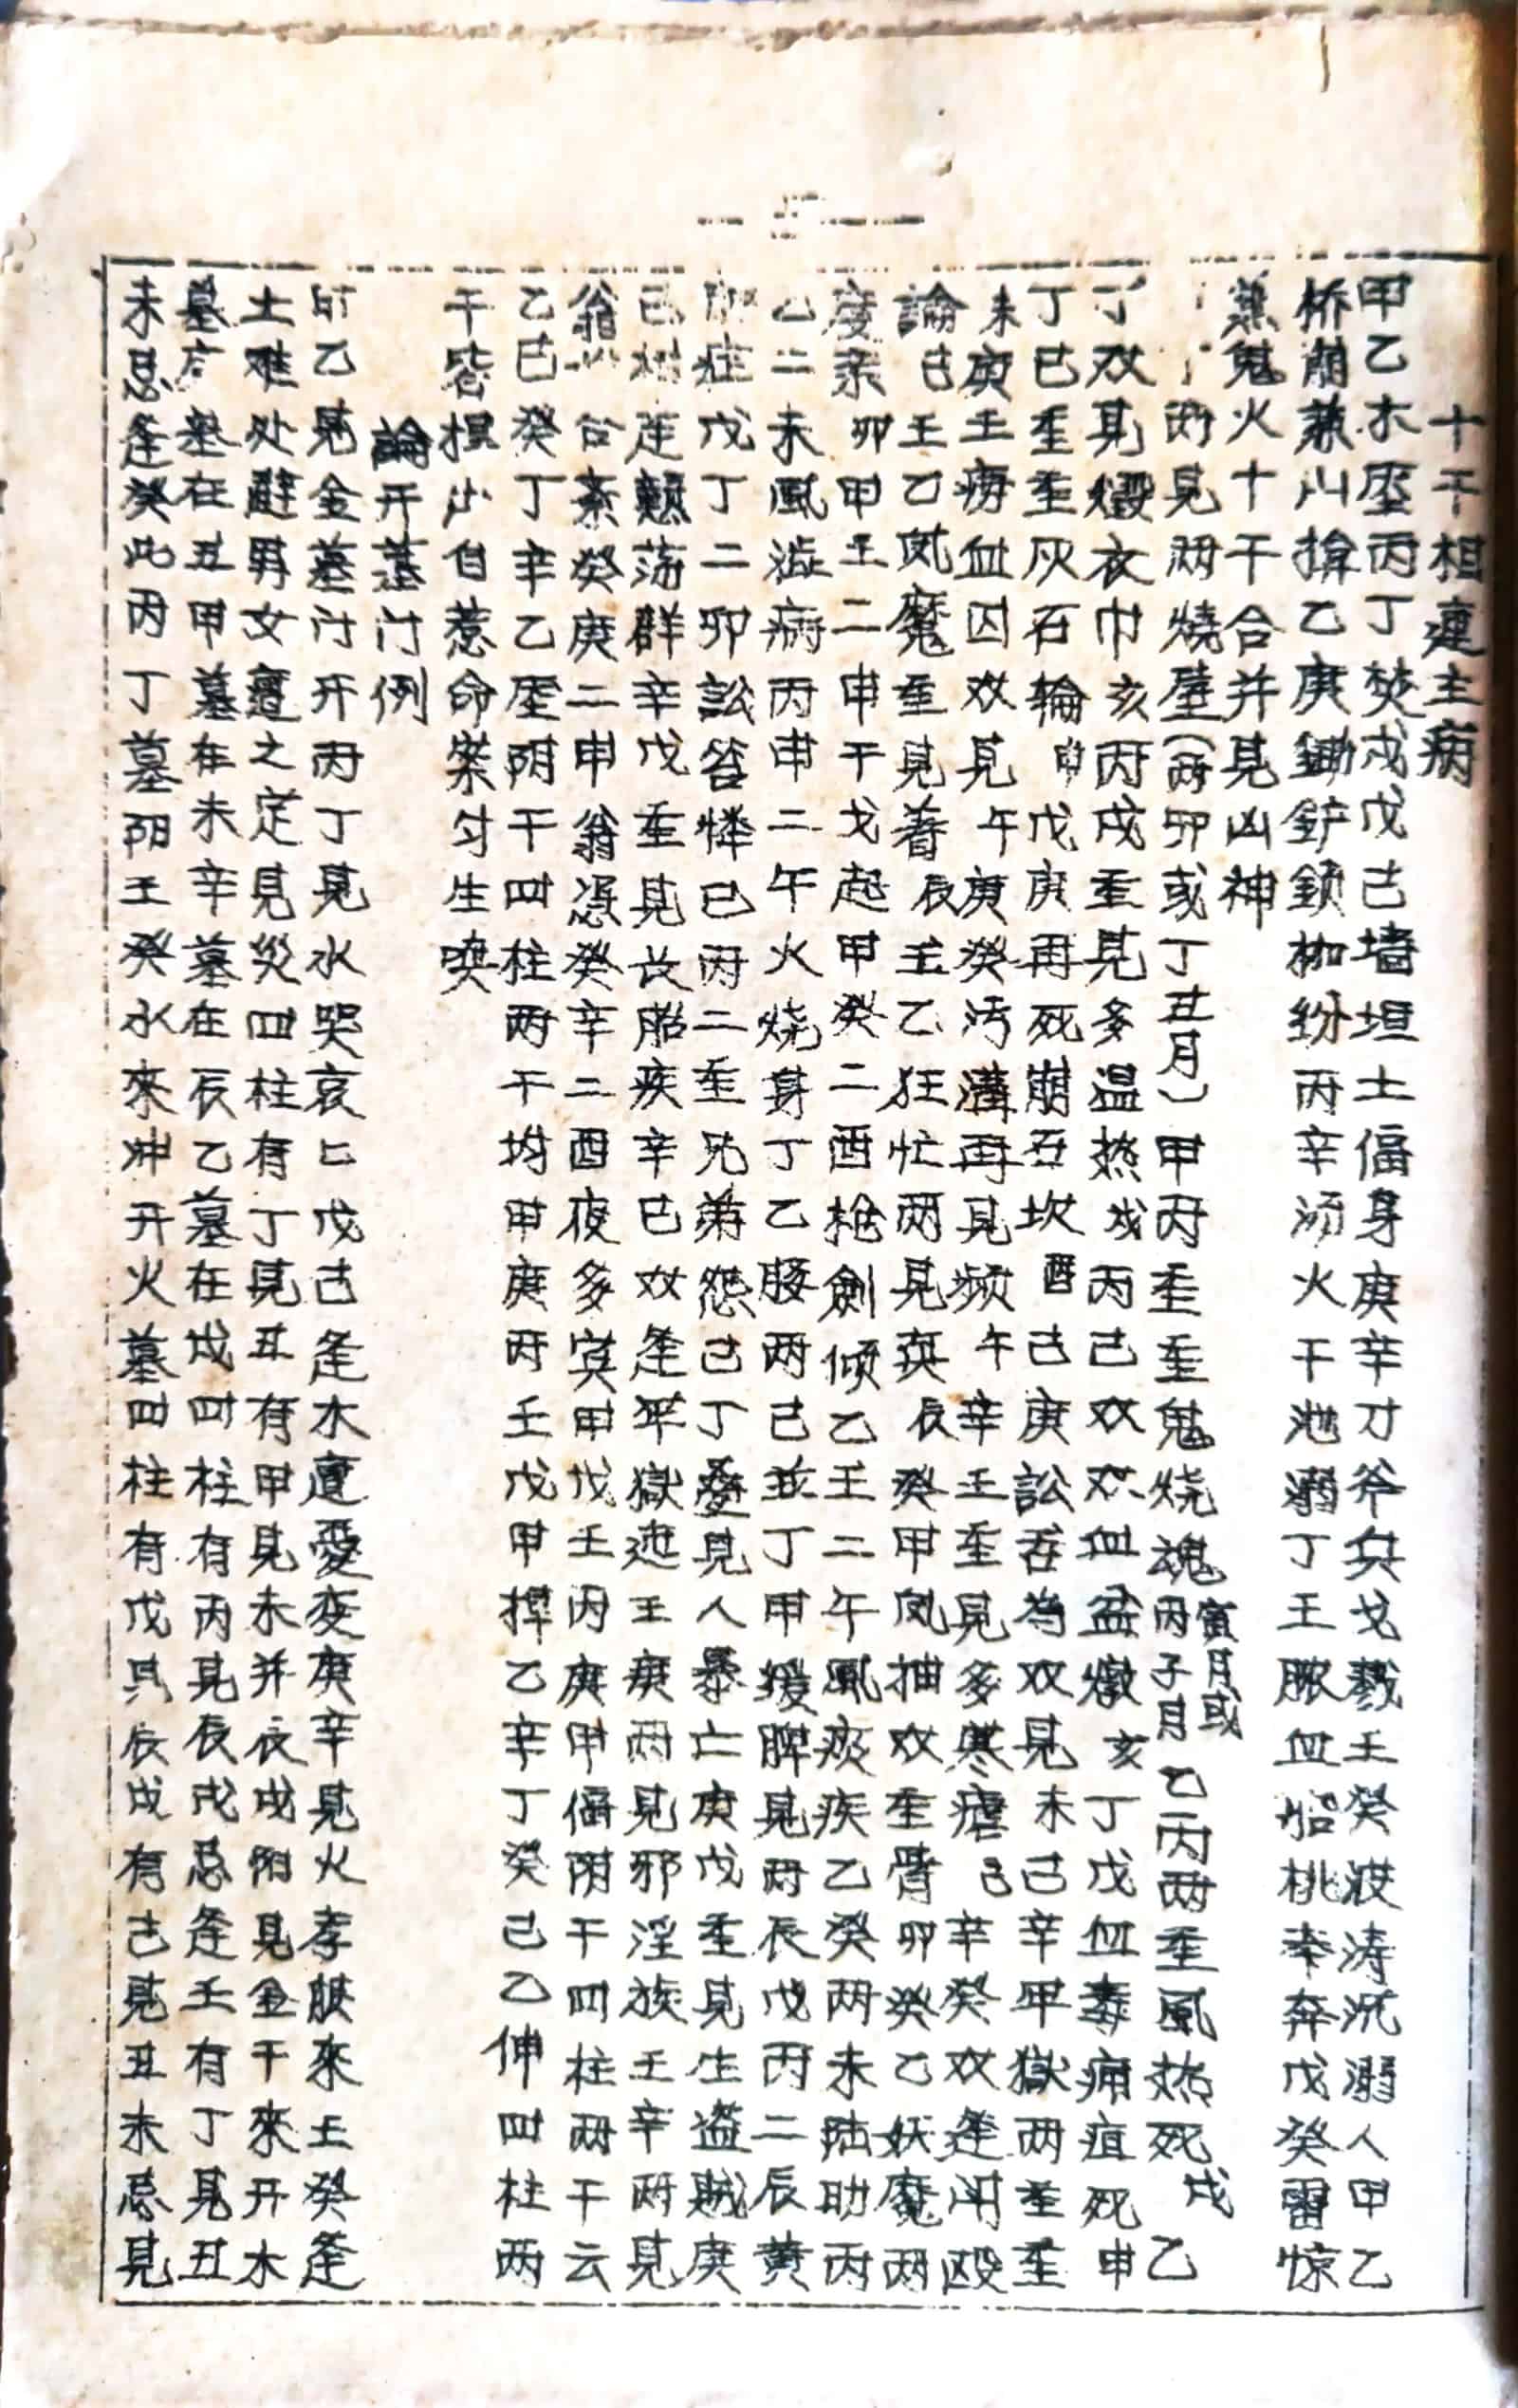 十干相連主病
甲乙木壓丙丁焚戍戊己墙垣土傴身庚辛刀斧兵戈戮壬癸波涛沉溺人甲乙
桥崩兼山損乙庚鋤鏟鎖枷紛丙辛汤火干池溺丁壬脓血船桃奉奔戊癸雷惊
兼鬼火十干合并見凶神
丙見兩燒壁(兩卯或丁丑月)甲丙重重鬼烧魂丙子月寅月或乙丙两重風热死戌乙
丁双見煅衣巾亥丙戍重見多温热戍丙己双双血盆燉亥丁戊血毒痈疽死申
丁巳重重灰石輪申戊庚再死崩丑坎酉己庚訟吞為双見未己辛甲獄两重重
未庚壬癆血囚双見午庚癸污溝再見频午辛壬重見多寒瘧己辛癸双逢闲殴
論己壬乙風魔重見着辰壬乙狂忙两見真辰癸甲風抽双重腎卯癸乙妖魔两
庚亲卯甲壬二申干戈起甲癸二酉槍劍倾乙壬二午風痰疾乙癸两未陆助丙
乙二未風澁病丙申二午火烧身丁乙腰两己並丁甲援脾見两辰戊丙二辰黄
症戊丁二卯訟笞怿己丙二重兄弟怨己丁叠見人暴亡庚戊重見生盗贼庚
己連顛荡群辛戊重見长胎疾辛巳双逢牢獄迍王庚两見邪淫族壬辛两見
翁台紊癸庚二申翁憑癸辛二酉夜多寅甲戊壬丙庚甲傴阴干四柱两干云
乙巳癸丁辛乙壓阴干四柱两干均甲庚丙壬戊甲撑乙辛丁癸己乙伸四柱两
干皆損出自惹命案匀生哭
論开墓门例
甲乙見金墓门开丙丁見水哭哀匕戊己逢木邅憂变庚辛見火孝服來壬癸逢
土难处避男女邅之定見災四柱有丁見丑有甲見未并辰戍阳見金干來开木
墓库墓在丑甲墓在未辛墓在辰乙墓在戍四柱有丙見辰戊忌逢壬有丁見丑
未忌逢癸此丙丁墓阴壬癸水來冲开火墓四柱有戊具辰戍有己見丑未忌見